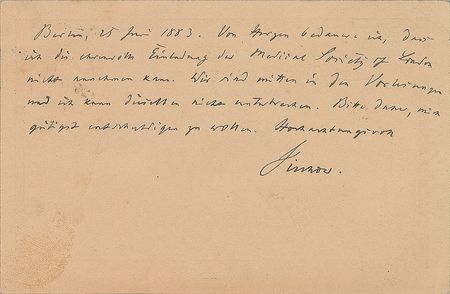 Berlin, 25 Juni 1883. Von Herzen bedaure ich, dass
ich die ehrenvolle Einladung der Medical Society of London
nicht annehmen kann. Wir sind mitten in den Vorlesungen
und ich kann dieselben nicht unterbrechen. Bitte daher, mich
gütigst entschuldigen zu wollen. Hochachtungsvoll
Virchow.